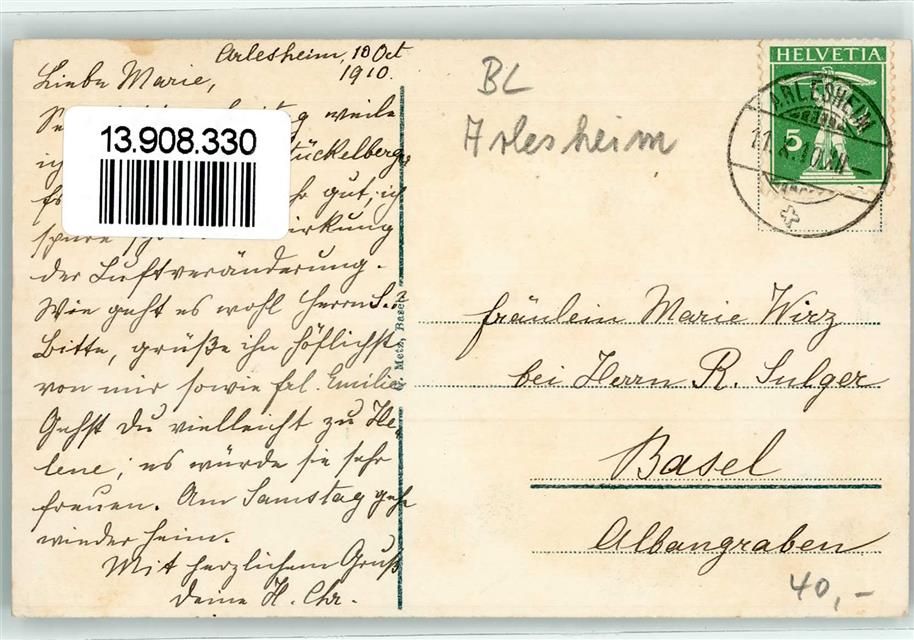 Arlesheim, 10 Oct
1910.
Liebe Marie,
weile
ich Stückelberg
Es gut, ich
spüre irkung
der Luftveränderung.
Wie geht es wohl Herrn S.
Bitte, grüße ihn höflichst
von mir sowie frl. Emilie
Gehst Du vielleicht zu He-
lene; es würde sie sehr
freuen. Am Samstag gehe
wieder heim.
Mit herzlichem Gruß
Deine H. Chr.
13.908.330
Metz, Basel
BL
Arlesheim
HELVETIA
5
ARLESHEIM
11.X.10.
Fräulein Marie Wirz
bei Herrn R. Sulger
Basel
Albangraben
40,-